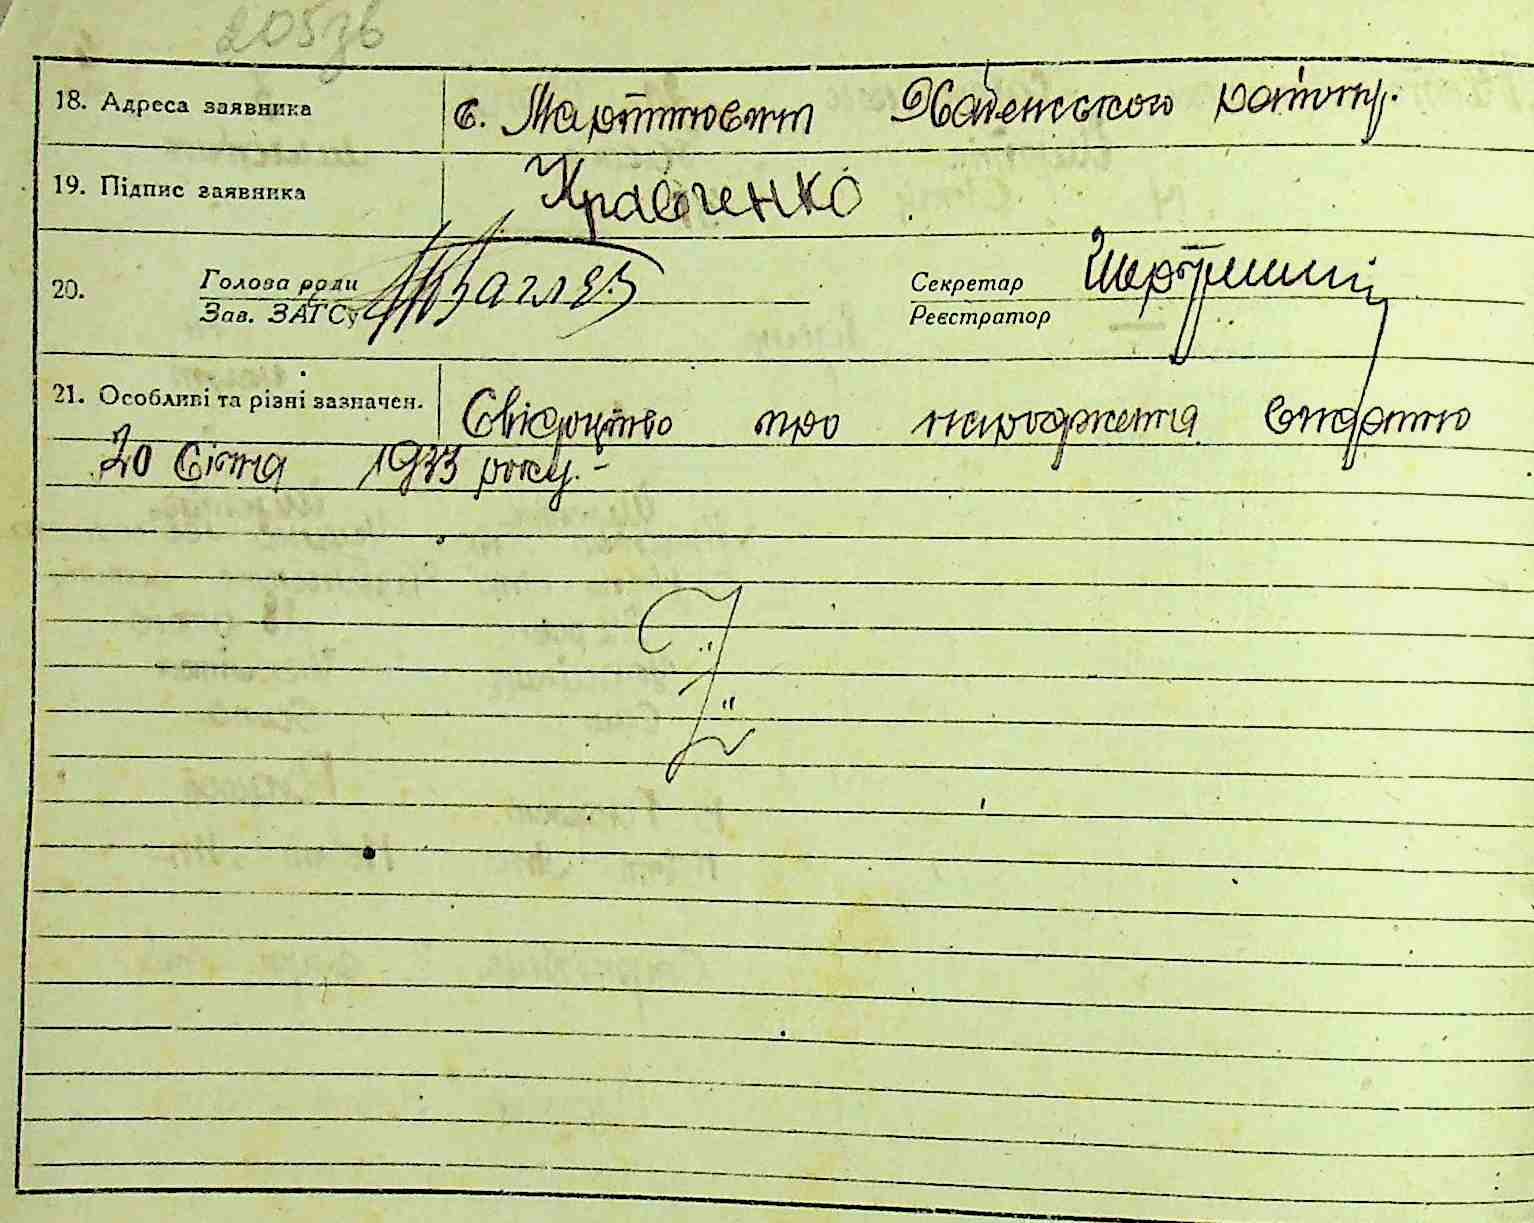 205зв
18. Адреса заявника с. Мартиновичі Хабенського району.
19. Підпис заявника Кравченко
20. Голова ради Секретар
Зав. ЗАГСу Реєстратор
21. Особливі та різні зазначен. Свідоцтво про народження видано
20 січня 1933 року.-